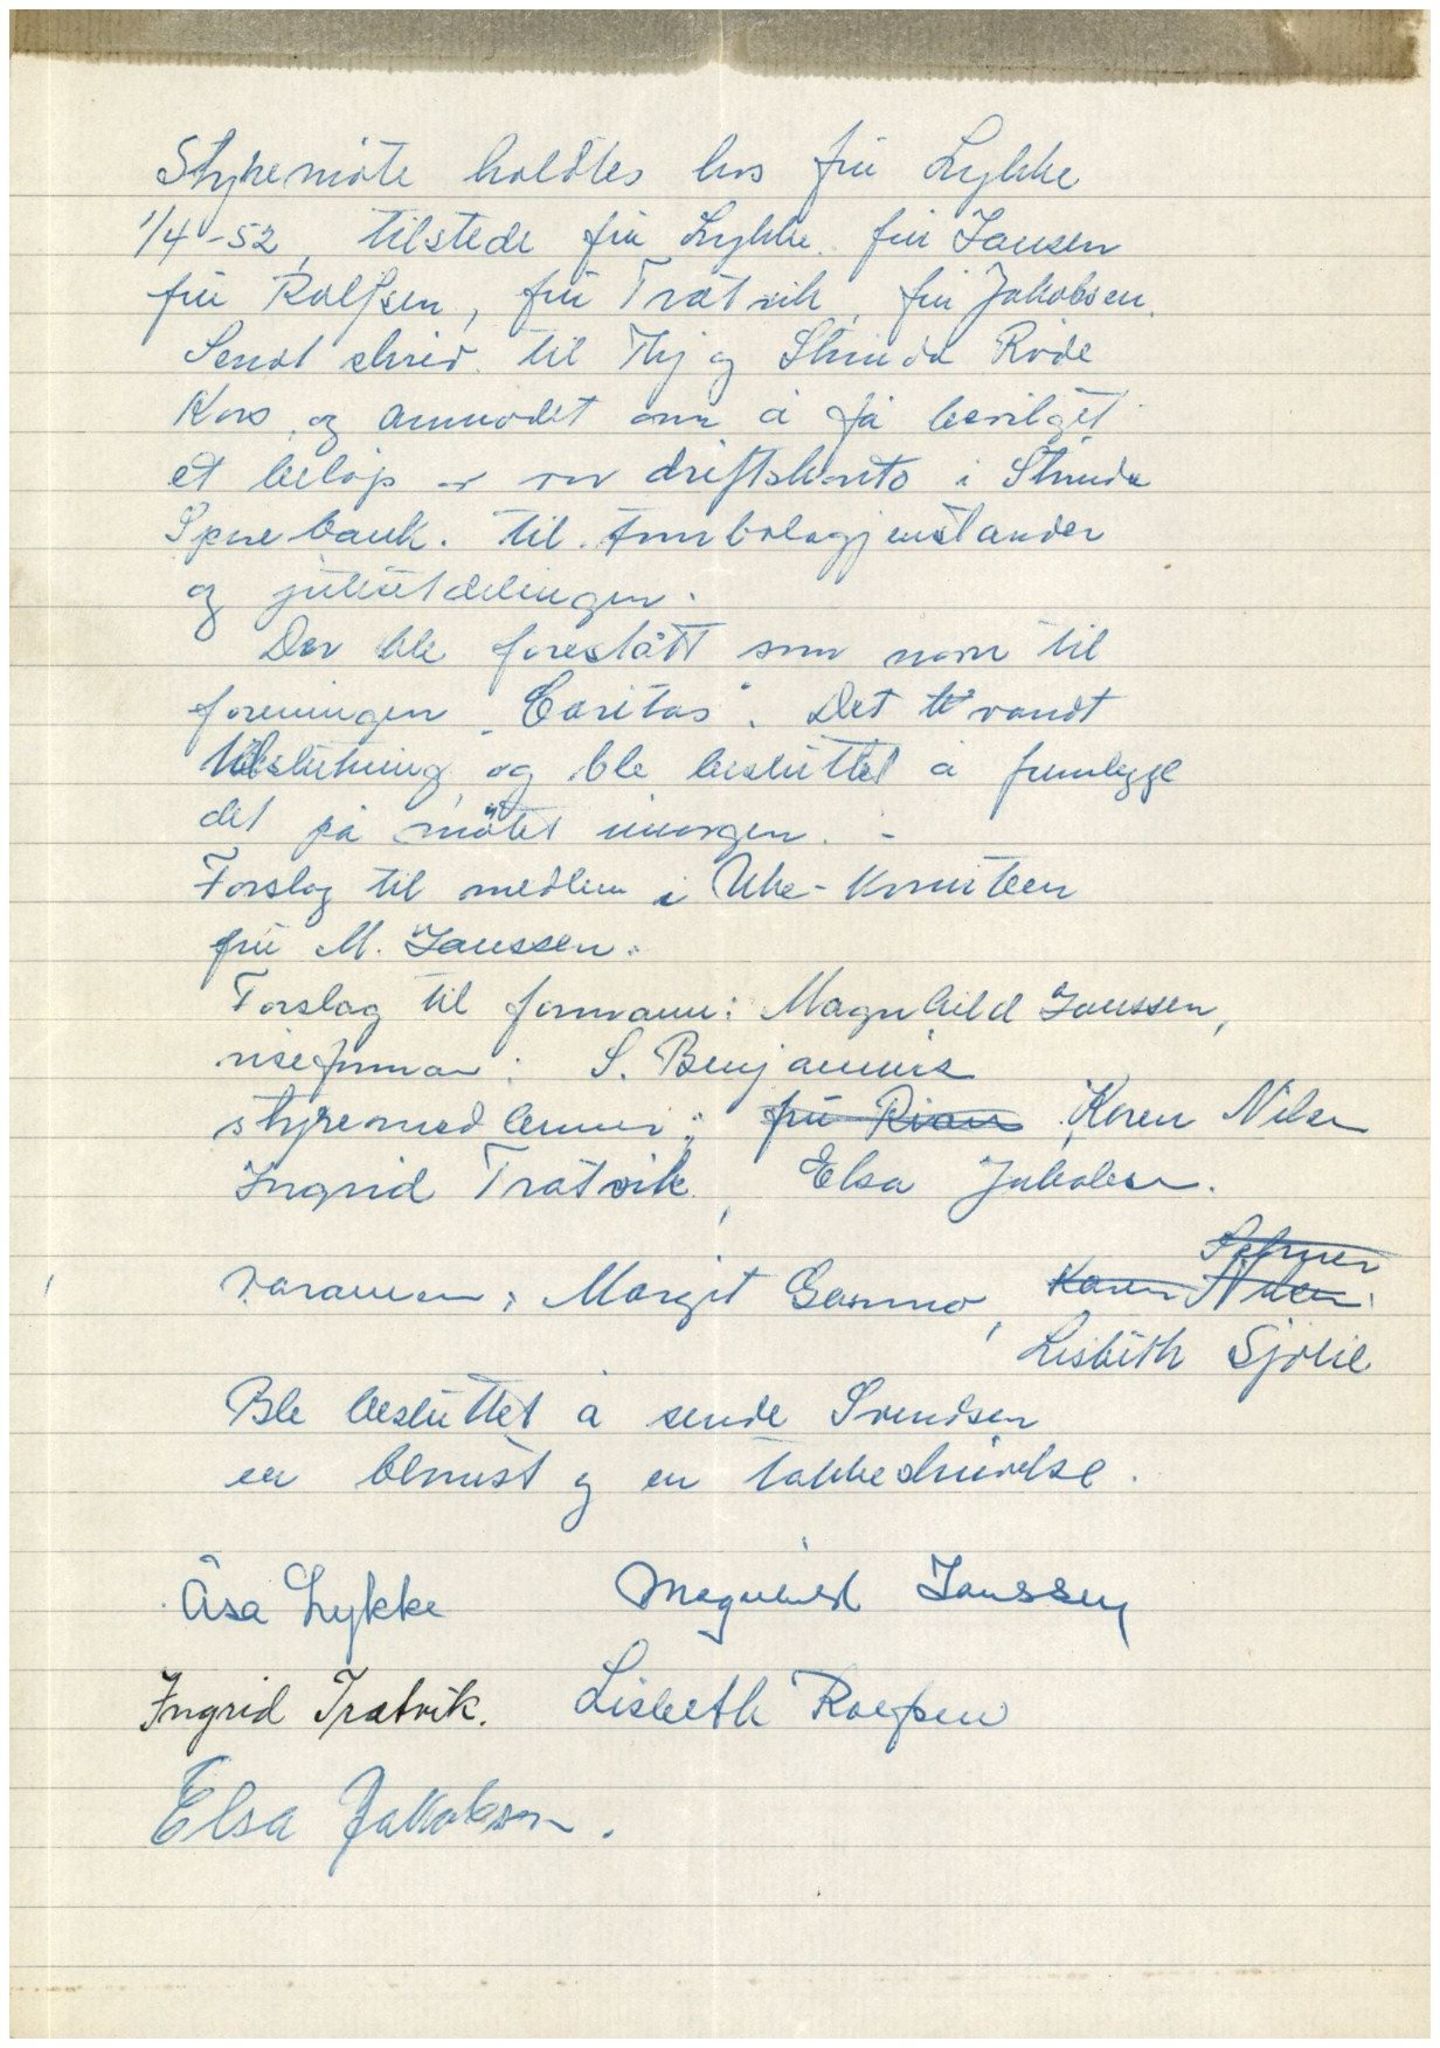 Styremöte holdtes hos frü Lykke
1/4-52, tilstede frü Lykke. frü Jansen
frü Rolfsen, frü Tratvik, frü Jakobsen.
Sendt skriv. til Thj og Strinda Röde
Kors, og anmodet om å få bevilget
et belöp av vor driftskonto i Strinda
Sparebank. til tombolagjenstander
og jüleütdelingen.
Der ble foreslått som navn til
foreningen „Caritas". Det vandt
tilslutning og ble beslüttet å fremlegge
det på mötet imorgen. -
Forslag til medlem i Uke-Komiteen
frü M. Janssen.
Forslag til formann: Magnhild Janssen,
viseforman: S. Benjamins
styremedlemmer: frü Rian Karen Nilsen
Ingrid Tratvik, Elsa Jakobsen.
varamen: Margit Garmo, Karen Nilsen
Lisbeth Sjölie
Ble beslüttet å sende Svendsen
en blomst og en takkeskrivelse.
Åsa Lykke Magnhild Janssen
Ingrid Tratvik. Lisbeth Rolfsen
Elsa Jakobsen.